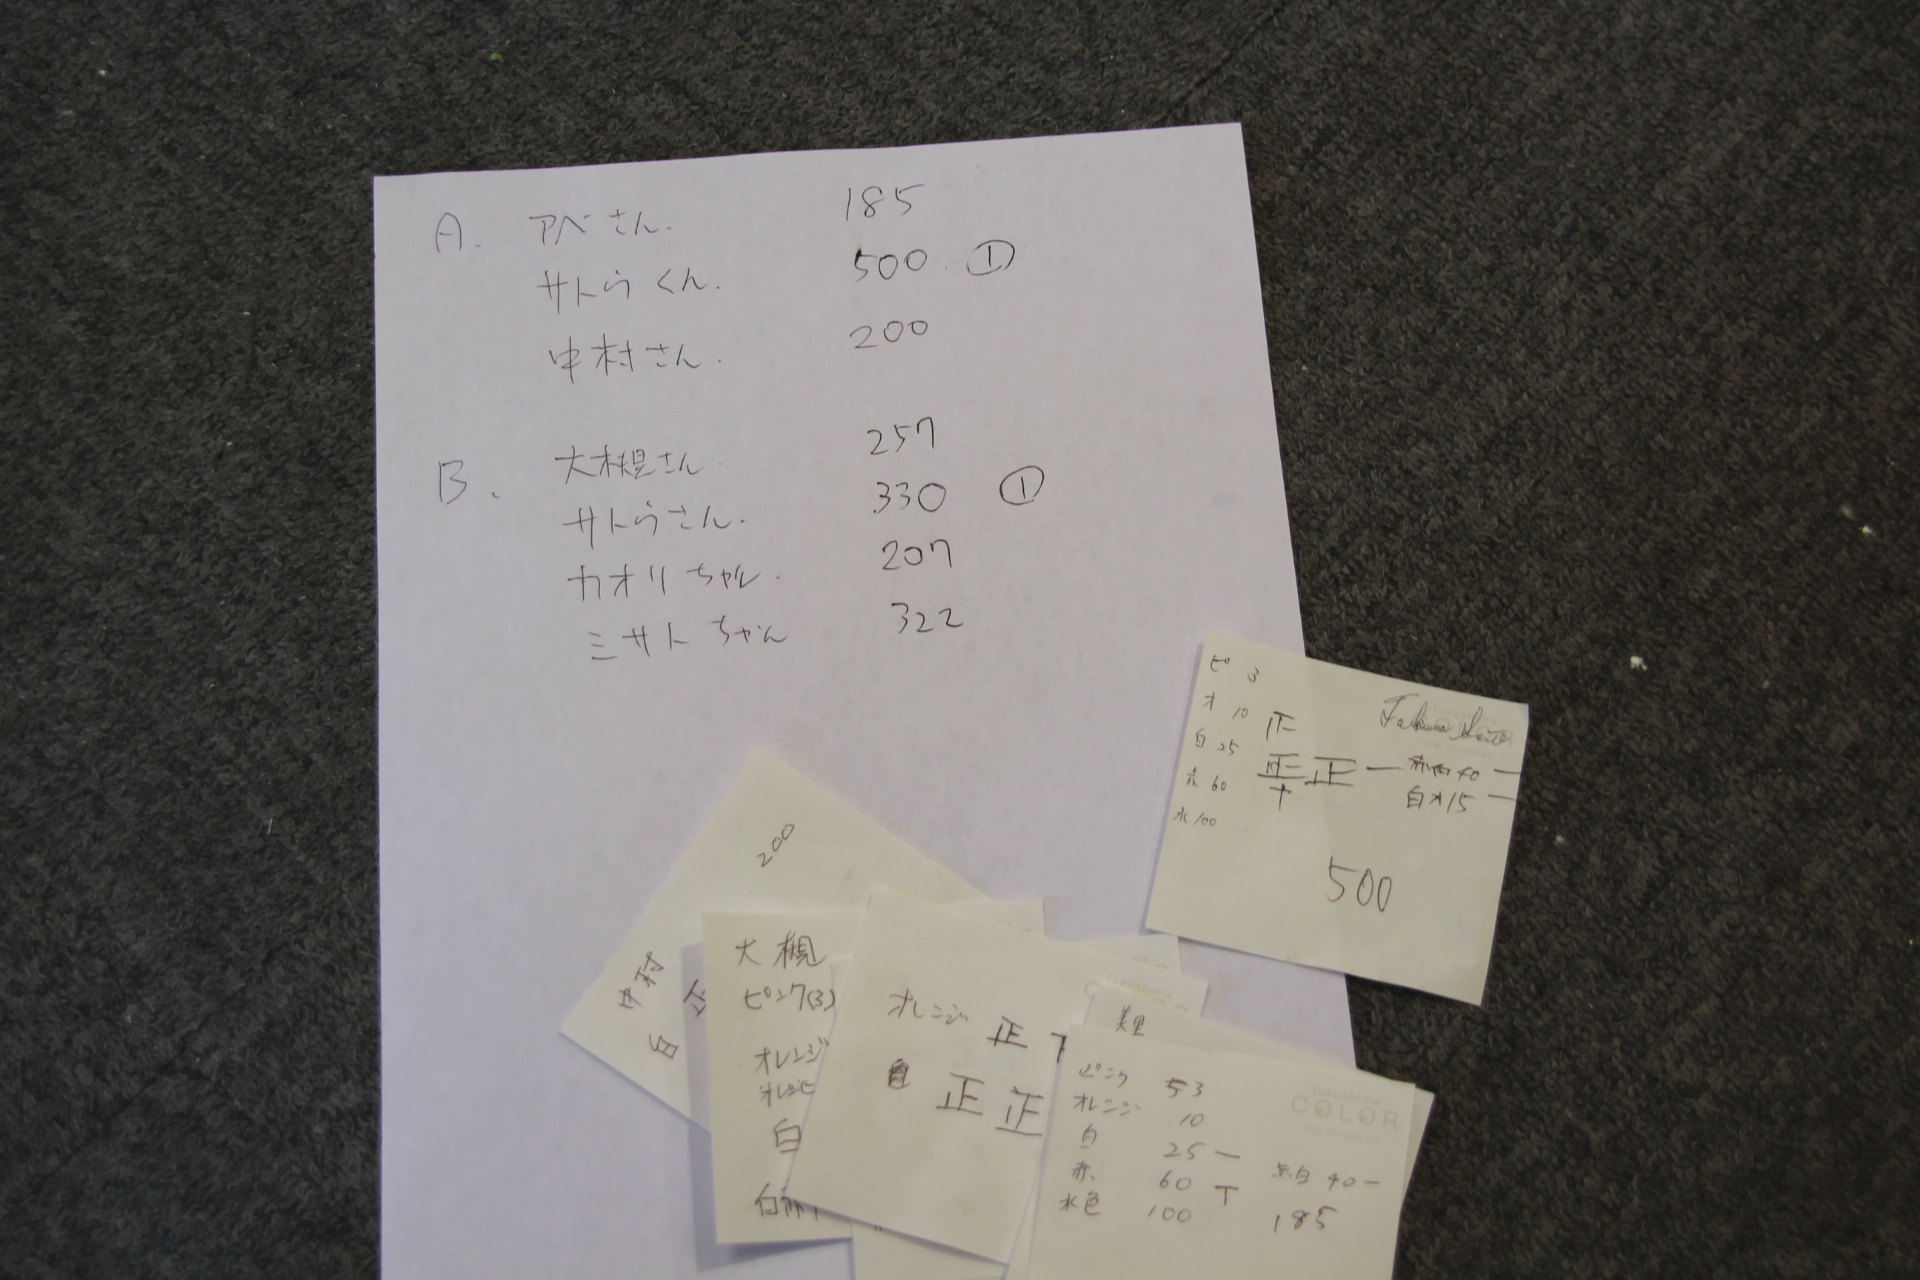 A. アベさん. 185
サトウくん. 500. ①
中村さん. 200
B. 大槻さん 257
サトウさん. 330 ①
カオリちゃん. 207
ミサトちゃん 322
ピ 3
オ 10 正
白 25 正正一
赤 60 下
水 100
白オ15 一
500
200
中村
白
大槻
ピンク(3)
オレンジ
白
オレンジ 正
正正
美里
ピンク 53
オレンジ 10
白 25 一
赤 60 T
水色 100
fukushima
COLOR
赤白 40 一
185